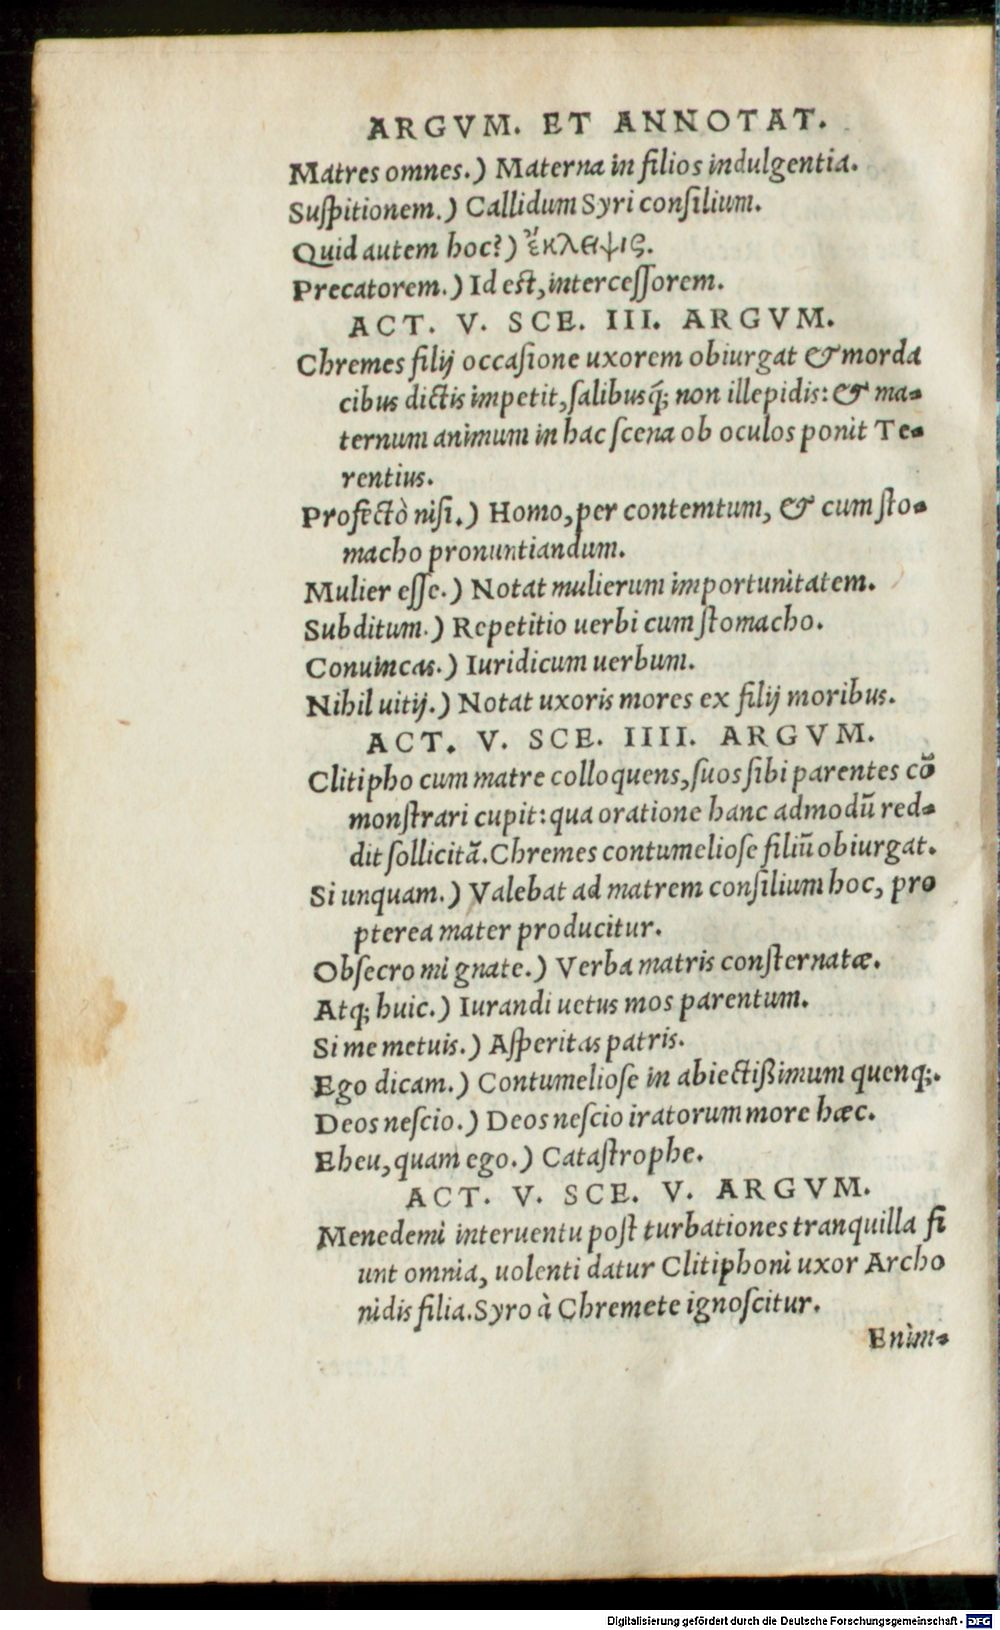 ARGVM. ET ANNOTAT.
Matres omnes.) Materna in filios indulgentia.
Suſpitionem.) Callidum Syri conſilium.
Quid autem hoc?) ἔκλειψις.
Precatorem.) Id eſt, interceſſorem.
ACT. V. SCE. III. ARGVM.
Chremes filij occaſione uxorem obiurgat & morda
cibus dictis impetit, ſalibusq́; non illepidis: & ma-
ternum animum in hac ſcena ob oculos ponit Te-
rentius.
Profectò niſi.) Homo, per contemtum, & cum ſto-
macho pronuntiandum.
Mulier eſſe.) Notat mulierum importunitatem.
Subditum.) Repetitio uerbi cum ſtomacho.
Conuincas.) Iuridicum uerbum.
Nihil uitij.) Notat uxoris mores ex filij moribus.
ACT. V. SCE. IIII. ARGVM.
Clitipho cum matre colloquens, ſuos ſibi parentes cõ
monſtrari cupit: qua oratione hanc admodũ red-
dit ſollicitã. Chremes contumelioſe filiũ obiurgat.
Si unquam.) Valebat ad matrem conſilium hoc, pro
pterea mater producitur.
Obſecro mi gnate.) Verba matris conſternatæ.
Atq; huic.) Iurandi uetus mos parentum.
Si me metuis.) Aſperitas patris.
Ego dicam.) Contumelioſe in abiectiſsimum quenq;.
Deos neſcio.) Deos neſcio iratorum more hæc.
Eheu, quam ego.) Cataſtrophe.
ACT. V. SCE. V. ARGVM.
Menedemi interuentu poſt turbationes tranquilla fi
unt omnia, uolenti datur Clitiphoni uxor Archo
nidis filia. Syro à Chremete ignoſcitur.
Enim-
Digitalisierung gefördert durch die Deutsche Forschungsgemeinschaft - DFG